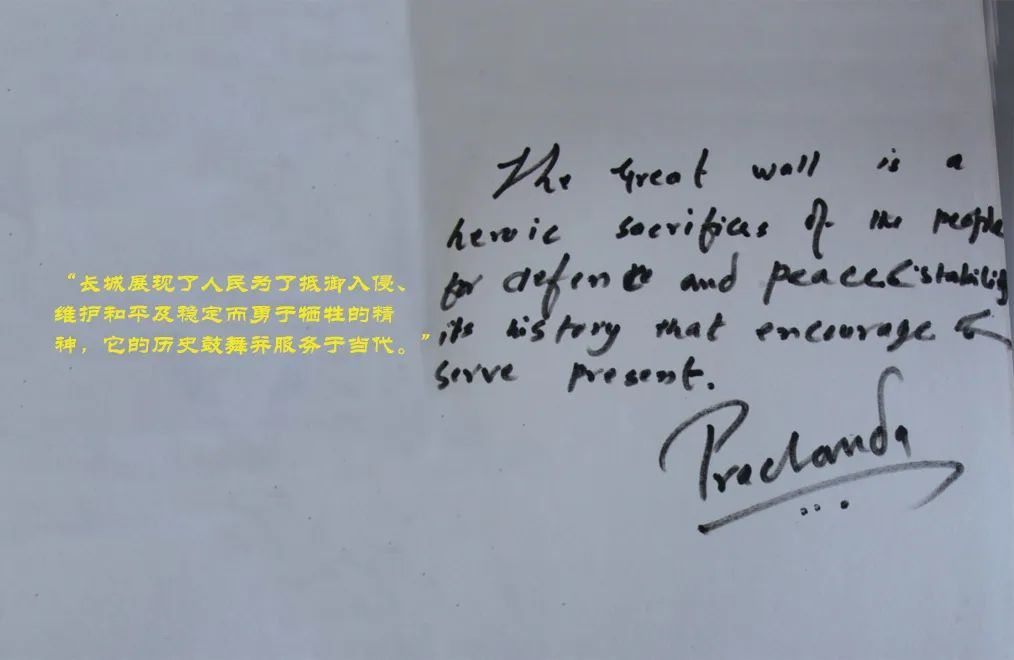 “长城展现了人民为了抵御入侵、
维护和平及稳定而勇于牺牲的精
神，它的历史鼓舞并服务于当代。”
The Great wall is a
heroic sacrifices of the people
for defence and peace & stability
its history that encourage &
serve present.
Prachanda